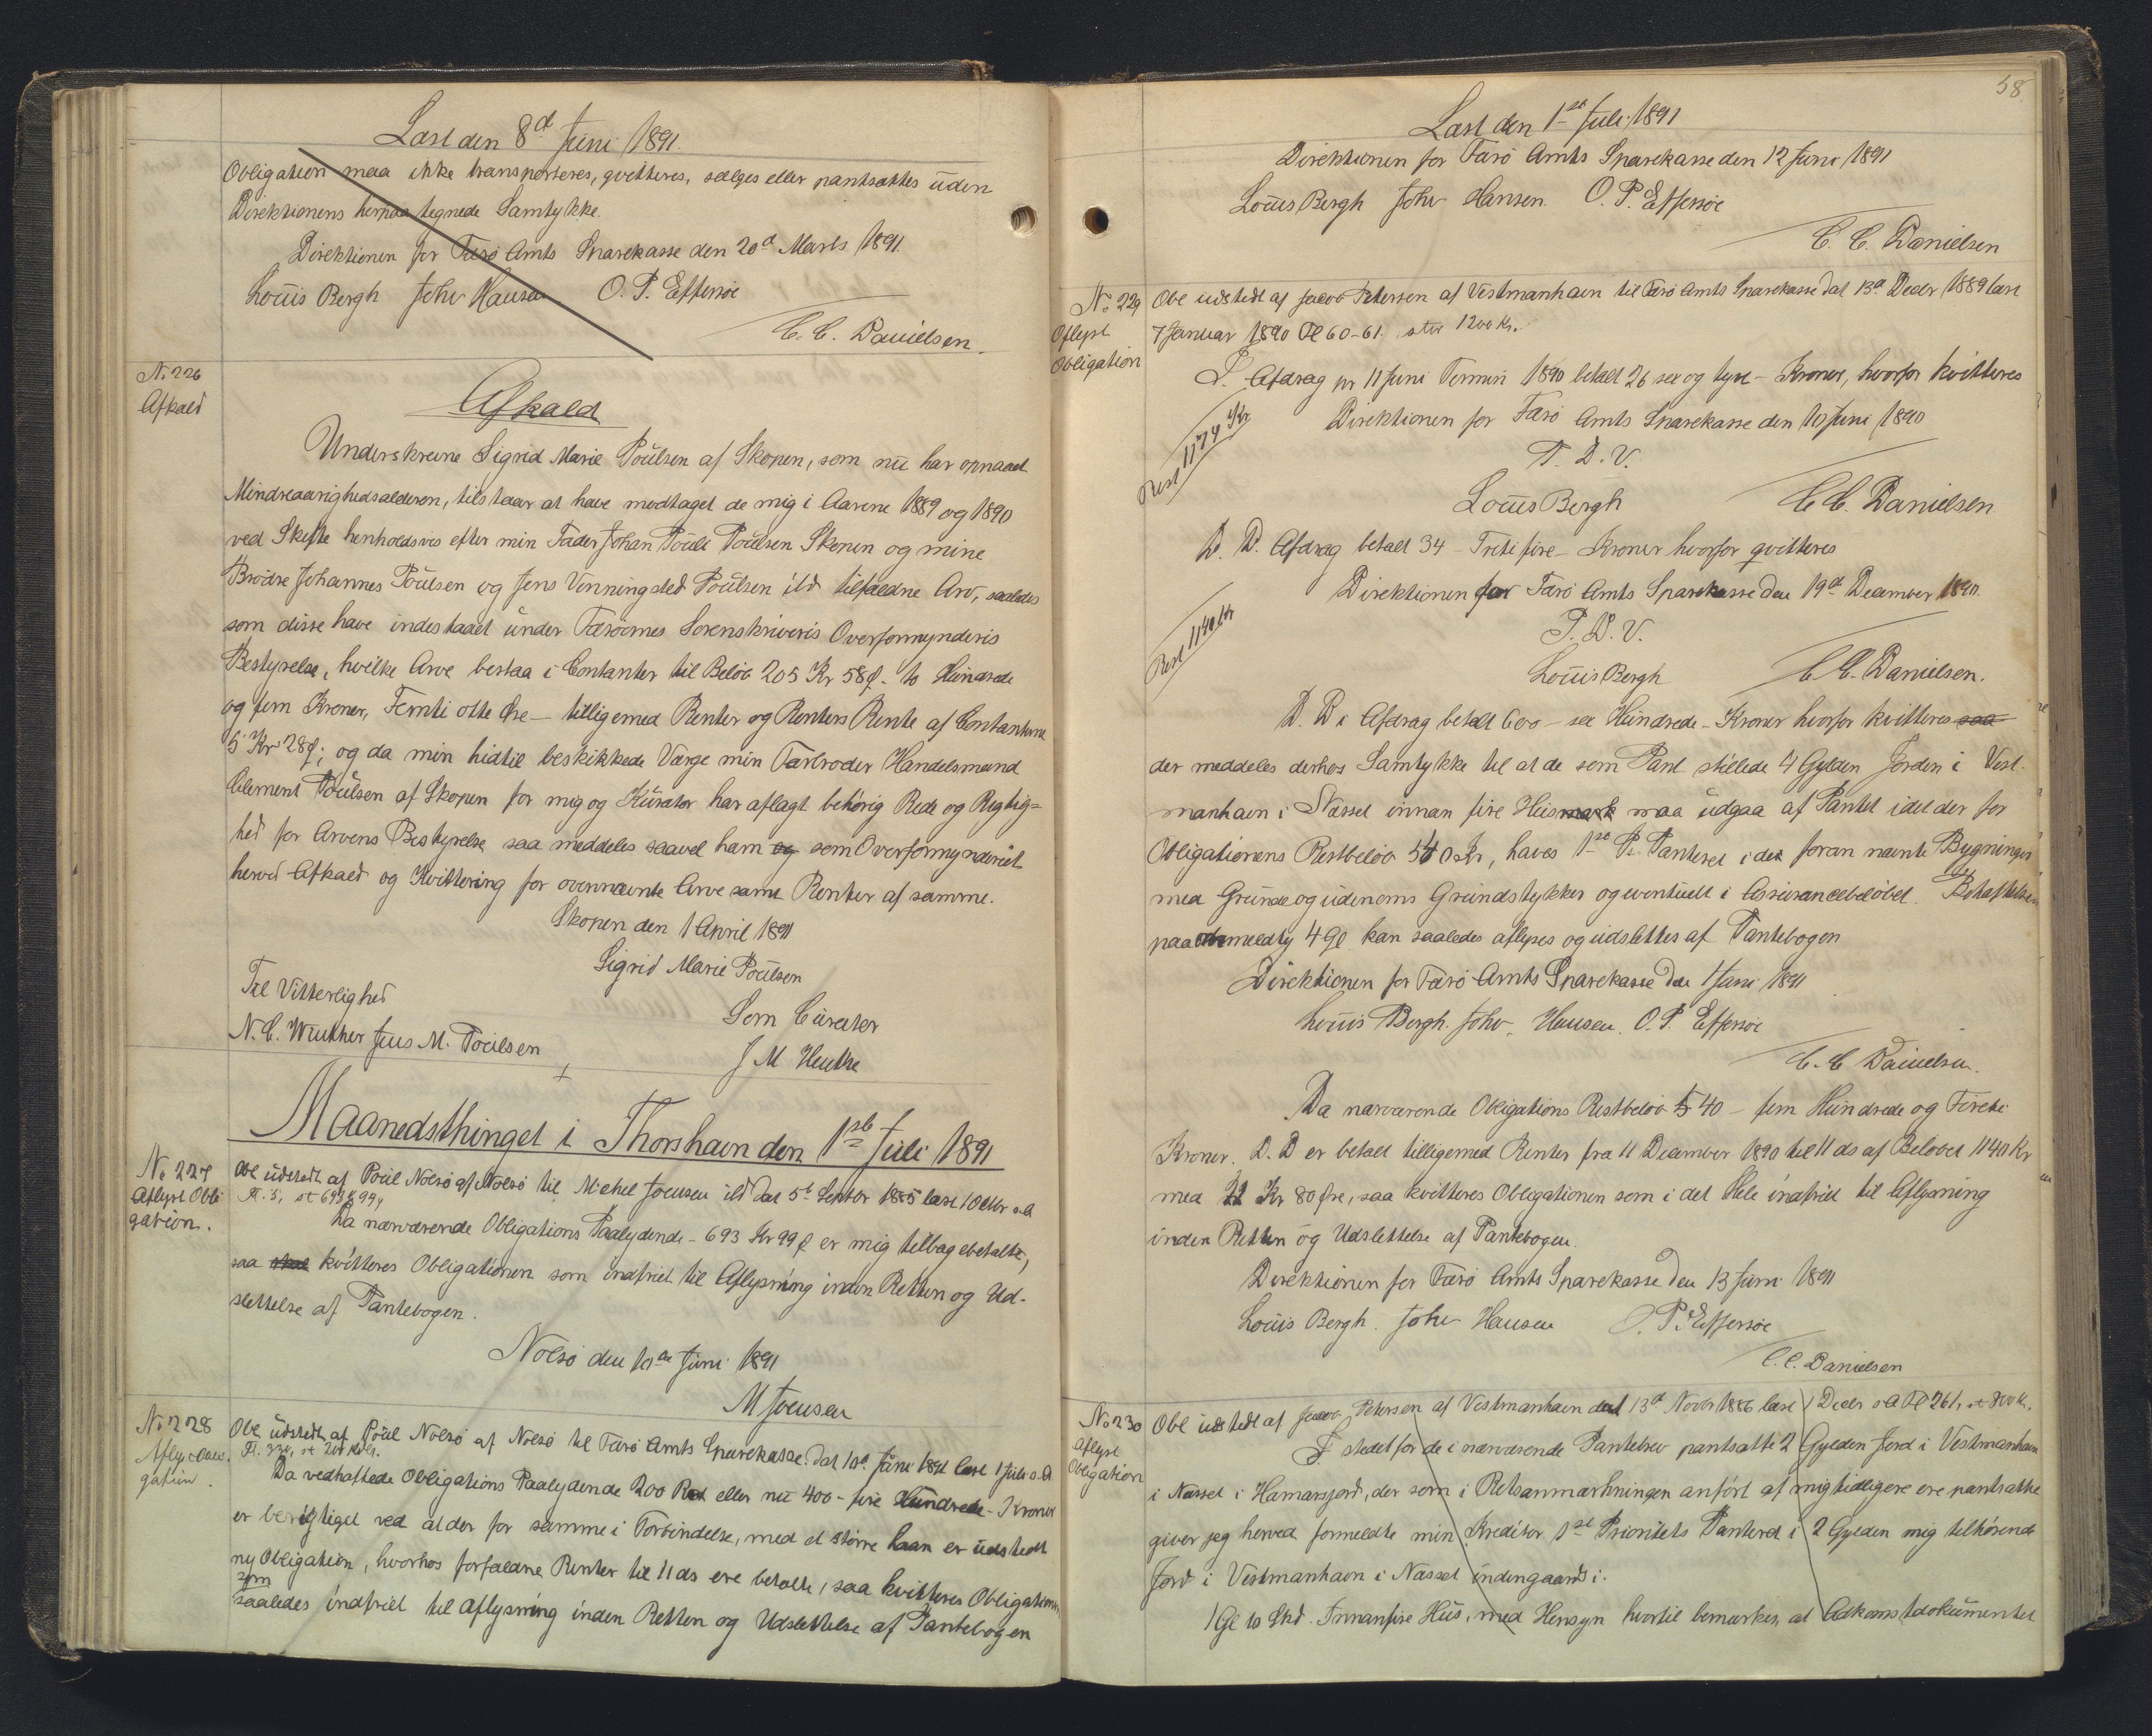 Læst den 8d Juni 1891.
Obligation maa ikke transporteres, qvitteres, sælges eller pantsættes uden
Direktionens herpaa tegnede Samtykke.
Direktionen for Færø Amts Sparekasse den 20d Marts 1891.
Louis Bergh Johs Hansen O. P. Effersøe
C. C. Danielsen.
No 226
Afkald
Afkald
Underskrevne Sigrid Marie Poulsen af Skopen, som nu har opnaaet
Mindreaarighedsalderen, tilstaar at have modtaget de mig i Aarene 1889 og 1890
ved Skifte henholdsvis efter min Fader Johan Pouli Poulsen Skopen og mine
Brødre Johannes Poulsen og Jens Venningsted Poulsen ibd tilfaldne Arv, saaledes
som disse have indestaaet under Færøernes Sorenskriveris Overformynderis
Bestyrelse, hvilke Arve bestaa i Contanter til Beløb 205 Kr 58 Ø. to Hundrede
og fem Kroner, Femti otte Øre — tilligemed Renter og Renters Rente af Contanterne
5 Kr 28 Ø; og da min hidtil beskikkede Værge min Farbroder Handelsmand
Clement Poulsen af Skopen for mig og Kurator har aflagt behørig Rede og Rigtig=
hed for Arvens Bestyrelse saa meddeles saavel ham og som Overformynderiet
herved Afkald og Kvittering for ovennævnte Arve samt Renter af samme.
Skopen den 1 April 1891
Sigrid Marie Poulsen
Til Vitterlighed
Som Curator
N. C. Winther Jens M. Poulsen
J M Hentze
Maanedsthinget i Thorshavn den 1st Juli 1891
No 227
Aflyst Obli
gation.
Obl udstedt af Poul Nolsø af Nolsø til Michel Joensen ibd dat 5t Septbr 1885 læst 1 Octbr s. A
Fl. 5, st 693 K 99 Ø
Da nærværende Obligations Paalydende – 693 Kr 99 Ø er mig tilbagebetalte,
saa skal kvitteres Obligationen som indfriet til Aflysning inden Retten og Ud-
slettelse af Pantebogen.
Nolsø den 10de Juni 1891
M Joensen
No 228
Aflyst Obli
gation.
Obl udstedt af Poul Nolsø af Nolsø til Færø Amts Sparekasse. dat 10d. Juni læst 1 Juli s. A
Da vedhæftede Obligations Paalydende 200 Rd eller nu 400 – fire Hundrede – Kroner
er berigtiget ved at der for samme i Forbindelse, med et større Laan er udstedt
ny Obligation, hvorhos forfaldne Renter til 11 ds ere betalte, saa kvitteres Obligationen
som
saaledes indfriet til Aflysning inden Retten og Udslettelse af Pantebogen
58.
Læst den 1st Juli 1891
Direktionen for Færø Amts Sparekasse den 12 Juni 1891
Louis Bergh Johs Hansen O. P. Effersøe
C. C. Danielsen
No 229
Aflyst
Obligation
Obl udstedt af Jacob Petersen af Vestmanhavn til Færø Amts Sparekasse dat 13d Decbr 1889 læst
7 Januar 1890 Fl 60-61. stor 1200 Kr.
I Afdrag pr 11 Juni Termin 1890 betalt 26 sex og tyve – Kroner, hvorfor kvitteres
Direktionen for Færø Amts Sparekasse den 10 Juni 1890
Rest 1174 Kr
P. D. V.
Louis Bergh C. C. Danielsen
D. D. Afdrag betalt 34 – Treti fire – Kroner hvorfor qvitteres
Direktionen for Færø Amts Sparekasse den 19d December 1890.
Rest 1140 Kr
P. D. V.
Louis Bergh C. C. Danielsen.
D. D i Afdrag betalt 600 – sex Hundrede – Kroner hvorfor kvitteres saa
der meddeles derhos Samtykke til at de som Pant stillede 4 Gylden Jorden i Vest-
manhavn i Næssel innan fire Husmark maa udgaa af Pantet idet der for
Obligationens Restbeløb 540 Kr, haves 1st Pr. Panteret i det foran nævnte Bygninger
med Grunde og udenoms Grundstykker og eventuelt i Assurancebeløbet. Behæftelsen
paa ommeldty 4 Gl kan saaledes aflyses og udslettes af Pantebogen
Direktionen for Færø Amts Sparekasse den 1 Juni 1891
Louis Bergh. Johs. Hansen. O. P. Effersøe
C. C Danielsen.
Da nærværende Obligations Restbeløb 540 – fem Hundrede og Fireti
Kroner. D. D er betalt tilligemed Renter fra 11 December 1890 til 11 ds af Beløbet 1140 Kr
med 22 Kr 80 Øre, saa kvitteres Obligationen som i det Hele indfriet til Aflysning
inden Retten og Udslettelse af Pantebogen.
Direktionen for Færø Amts Sparekasse den 13 Juni 1891
Louis Bergh. Johs Hansen O. P. Effersøe
C. C. Danielsen
No 230
Aflyst
Obligation
Obl udstedt af Jacob Petersen af Vestmanhavn dat 13d Novbr 1886 læst 1 Decbr s A Fl 261, st 800 K.
I stedet for de i nærværende Pantebrev pantsatte 2 Gylden Jord i Vestmanhavn
i Næssel i Hamarsjord, der som i Retsanmærkningen anført af mig tidligere ere pantsatte
giver jeg herved formeldte min Kreditor 1st Prioritets Panteret i 2 Gylden mig tilhørende
Jord i Vestmanhavn i Næssel indengaards i.
1 Gl 10 Skd. Innanfire Hus, med Hensyn hvortil bemærkes, at Adkomstdokumentet